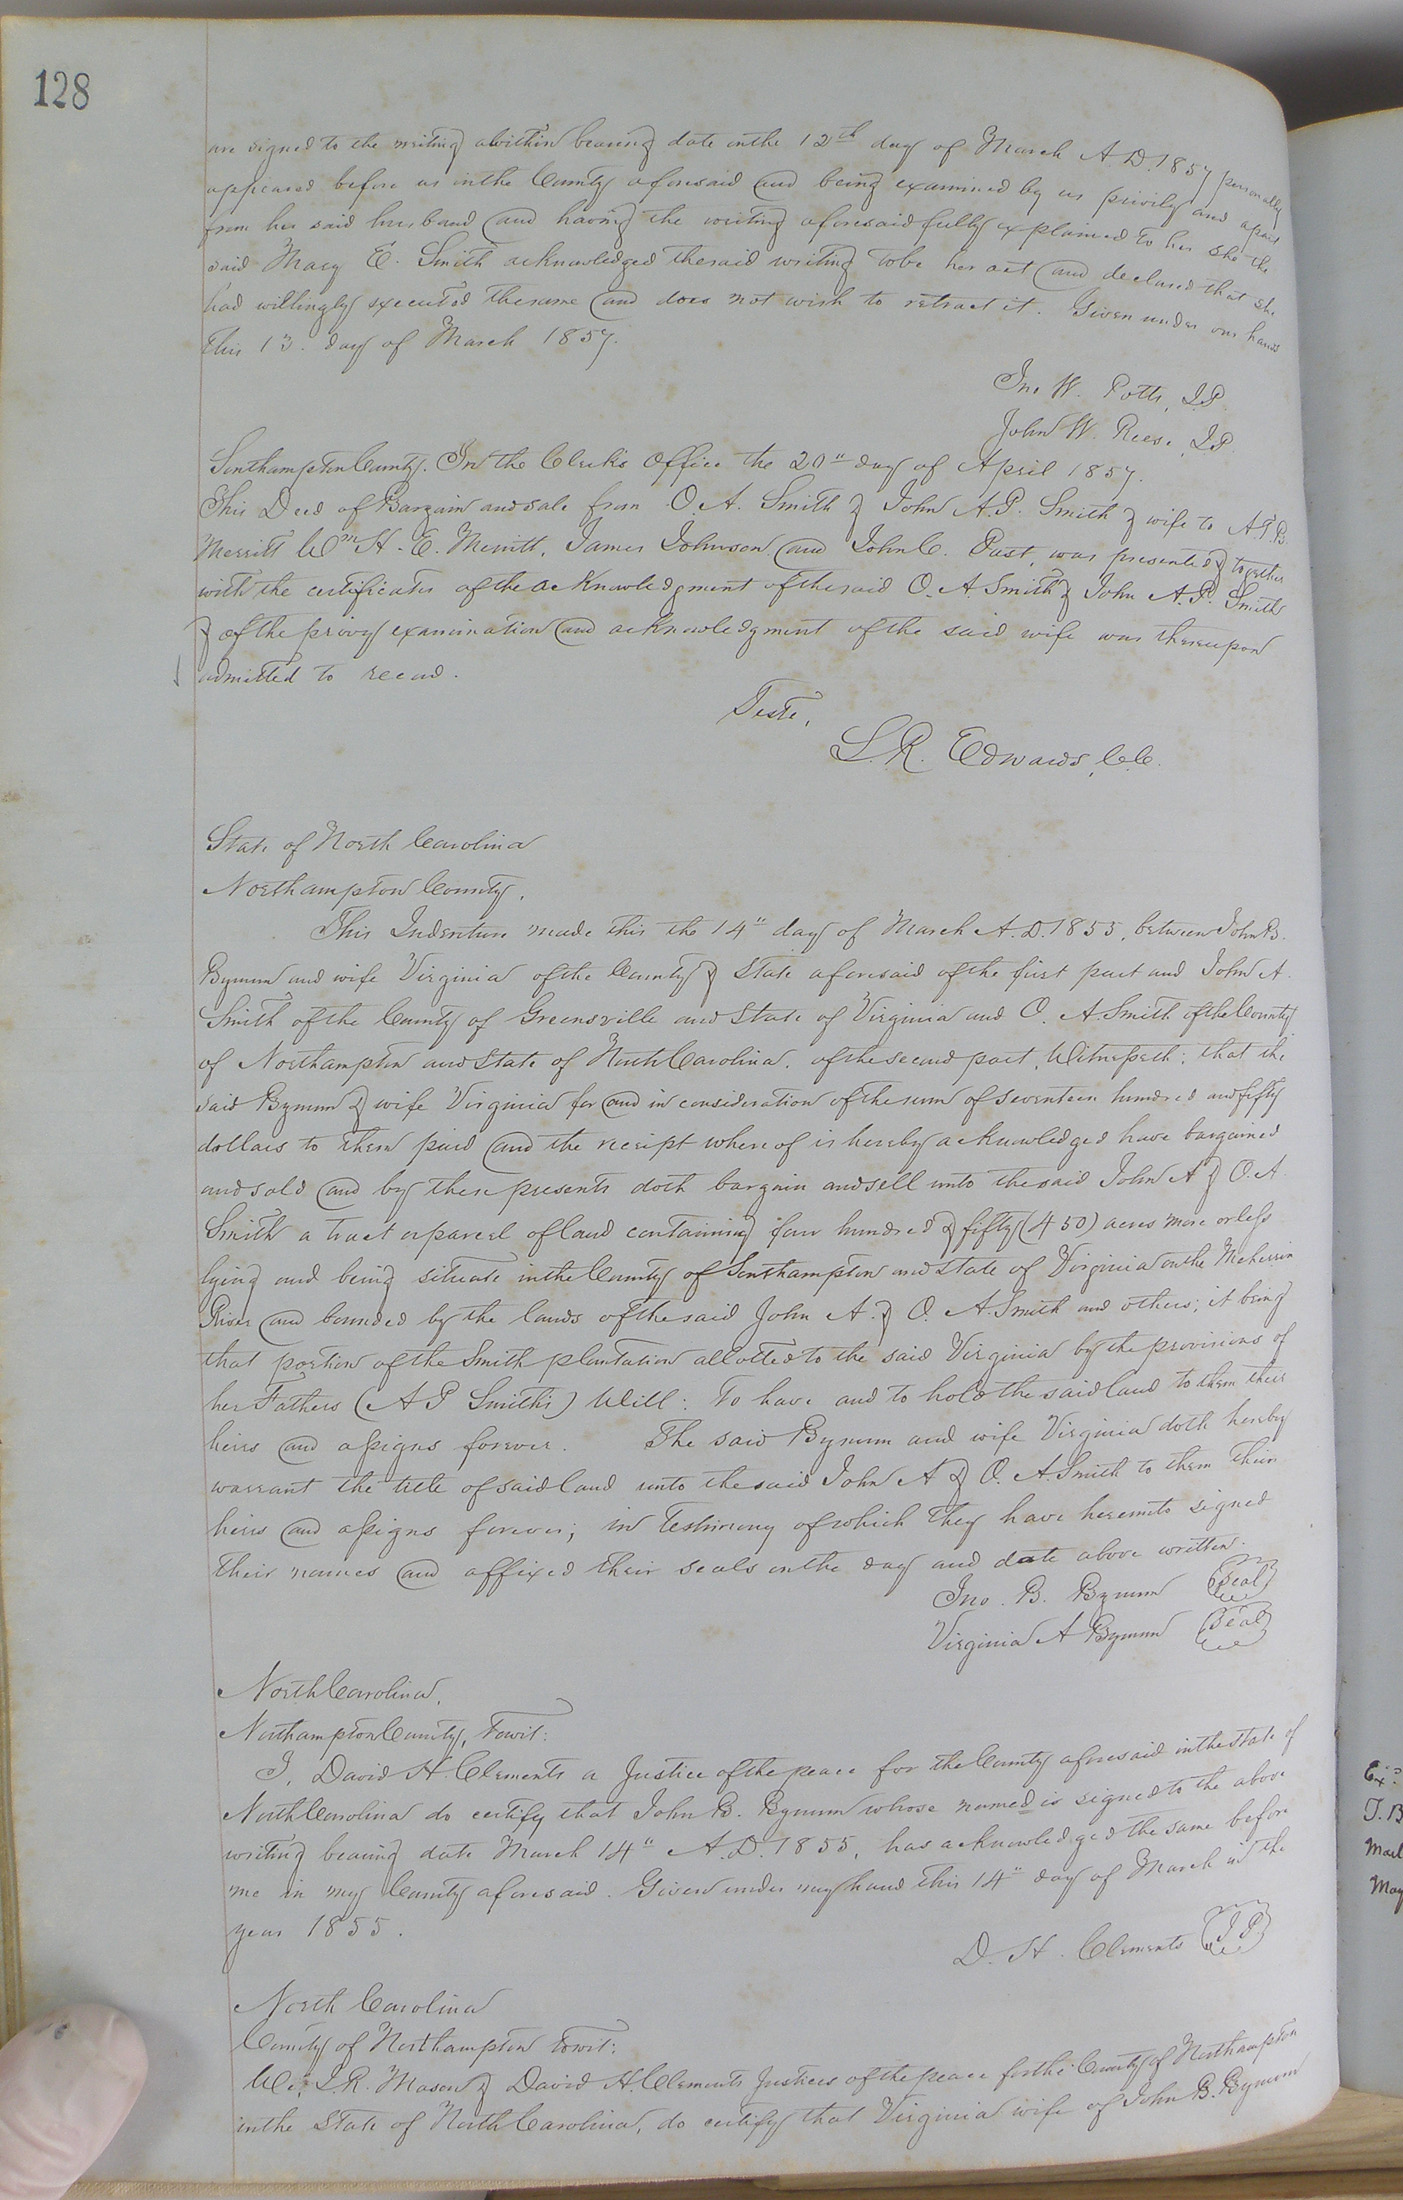 128
are signed to the writing a within bearing date on the 12th day of March A.D. 1857 personally
appeared before us in the County aforesaid and being examined by us privily and apart
from her said husband and having the writing aforesaid fully explained to her she the
said Mary E. Smith acknowledged the said writing to be her act and declared that she
had willingly executed the same and does not wish to retract it. Given under our hands
this 13. day of March 1857.
Jno W. Potts, J.P.
John W. Reese, J.P.
Southampton County. In the Clerk's Office the 20" day of April 1857.
This Deed of Bargain and sale from O. A. Smith & John A.P. Smith & wife to A.T.B.
Merritt Wm H. E. Merritt, James Johnson and John C. Past, was presented & together
with the certificates of the acknowledgment of the said O. A. Smith & John A.P. Smith
& of the privy examination and acknowledgment of the said wife was thereupon
admitted to record.
Teste,
L. R. Edwards, C.C.
State of North Carolina
Northampton County.
This Indenture made this the 14" day of March A.D. 1855, between John B.
Bynum and wife Virginia of the County & State aforesaid of the first part and John A.
Smith of the County of Greensville and State of Virginia and O. A. Smith of the County
of Northampton and State of North Carolina, of the second part, Witnesseth: that the
said Bynum & wife Virginia for and in consideration of the sum of seventeen hundred and fifty
dollars to them paid and the receipt whereof is hereby acknowledged have bargained
and sold and by these presents doth bargain and sell unto the said John A & O. A.
Smith a tract or parcel of land containing four hundred & fifty (450) acres more or less
lying and being situate in the County of Southampton and State of Virginia on the Meherrin
River and bounded by the lands of the said John A. & O. A. Smith and others; it being
that portion of the Smith plantation allotted to the said Virginia by the provisions of
her Fathers (A P Smith's) Will: To have and to hold the said land to them their
heirs and assigns forever. The said Bynum and wife Virginia doth hereby
warrant the title of said land unto the said John A & O. A. Smith to them their
heirs and assigns forever; in testimony of which they have hereunto signed
their names and affixed their seals on the day and date above written.
Jno. B. Bynum (Seal)
Virginia A Bynum (Seal)
North Carolina,
Northampton County, towit:
I, David H. Clements a Justice of the peace for the County aforesaid in the State of
North Carolina do certify that John B. Bynum whose named is signed to the above
writing bearing date March 14" A.D. 1855, has acknowledged the same before
me in my County aforesaid. Given under my hand this 14" day of March in the
year 1855.
D. H. Clements (J P)
North Carolina
County of Northampton towit:
We, J. R. Mason & David H. Clements Justices of the peace for the County of Northampton
in the State of North Carolina, do certify that Virginia wife of John B. Bynum